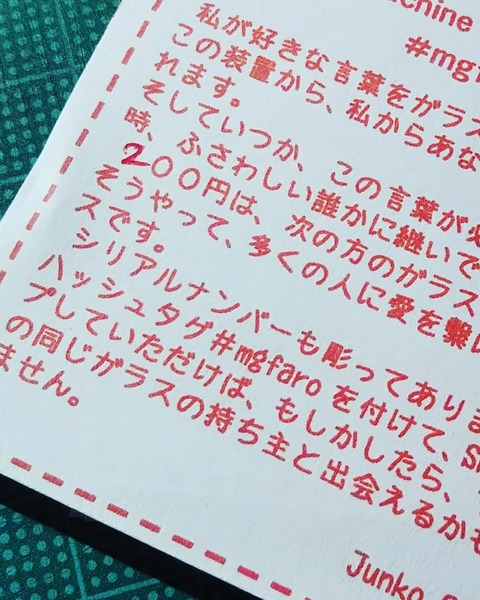 chine
#mgf
私が好きな言葉をガラス
この装置から、私からあな
れます。
そしていつか、この言葉が必
時、ふさわしい誰かに継いで
200円は、次の方のガラス
そうやって、多くの人に愛を繋
スです。
シリアルナンバーも彫ってありま
ハッシュタグ#mgfaro を付けて、S
プしていただけば、もしかしたら、
の同じガラスの持ち主と出会えるかも
ません。
Junko